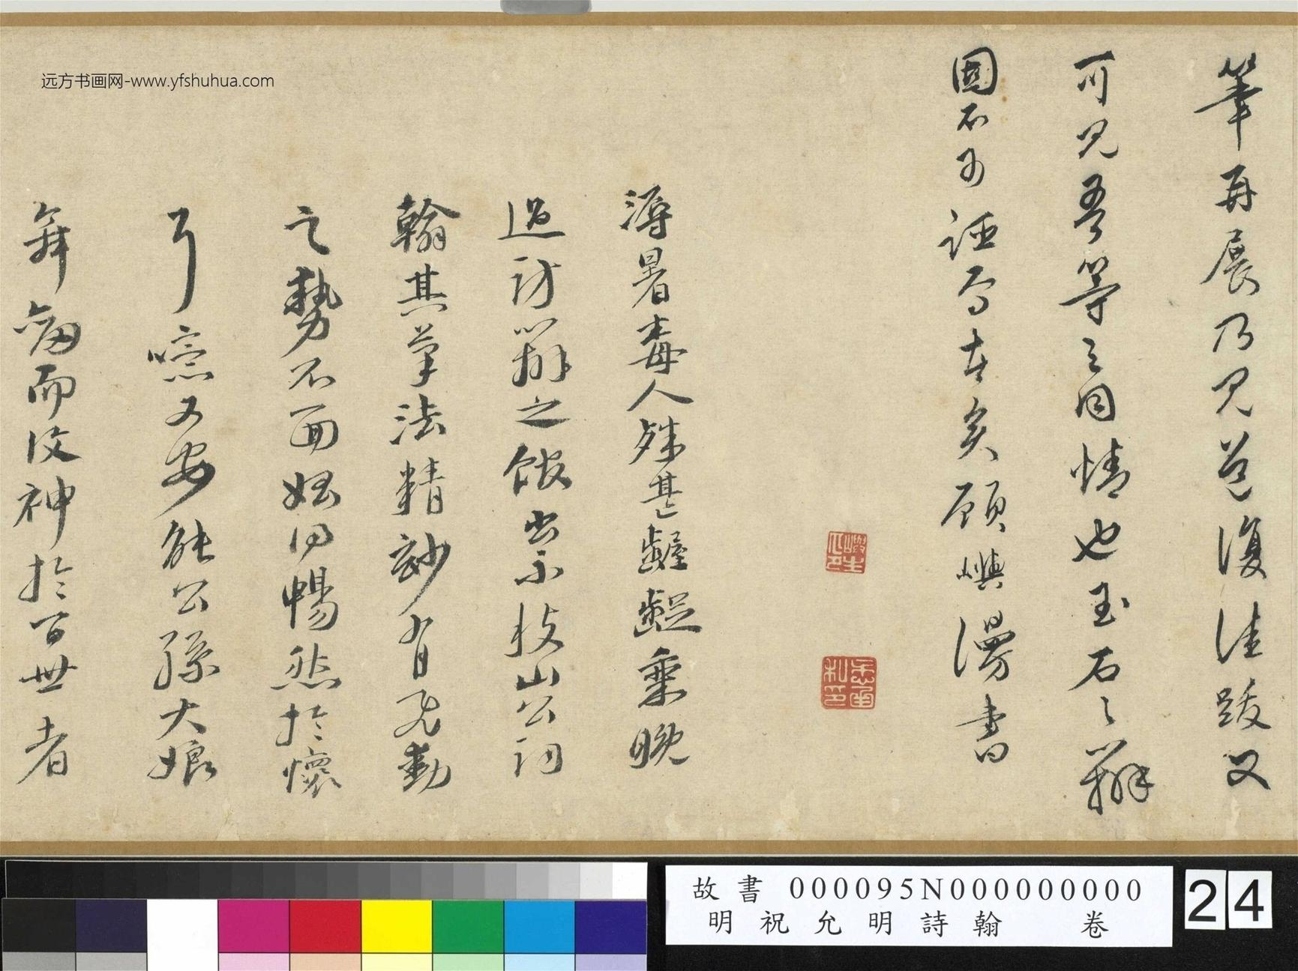 筆再展乃見芑復佳跋又
可見吾等之同情也玉石之辨
固不可誣焉在矣顧嶼漫書
溽暑毒人殊甚齷齪乘晚
過訪辭之飯出示枝山公詞
翰其筆法精妙有飛動
之勢不面如得暢然於懷
耳噫又安能公孫大娘
舞劒而後神於百世者
远方书画网-www.yfshuhua.com
故書 000095N000000000
明祝允明詩翰 卷
24